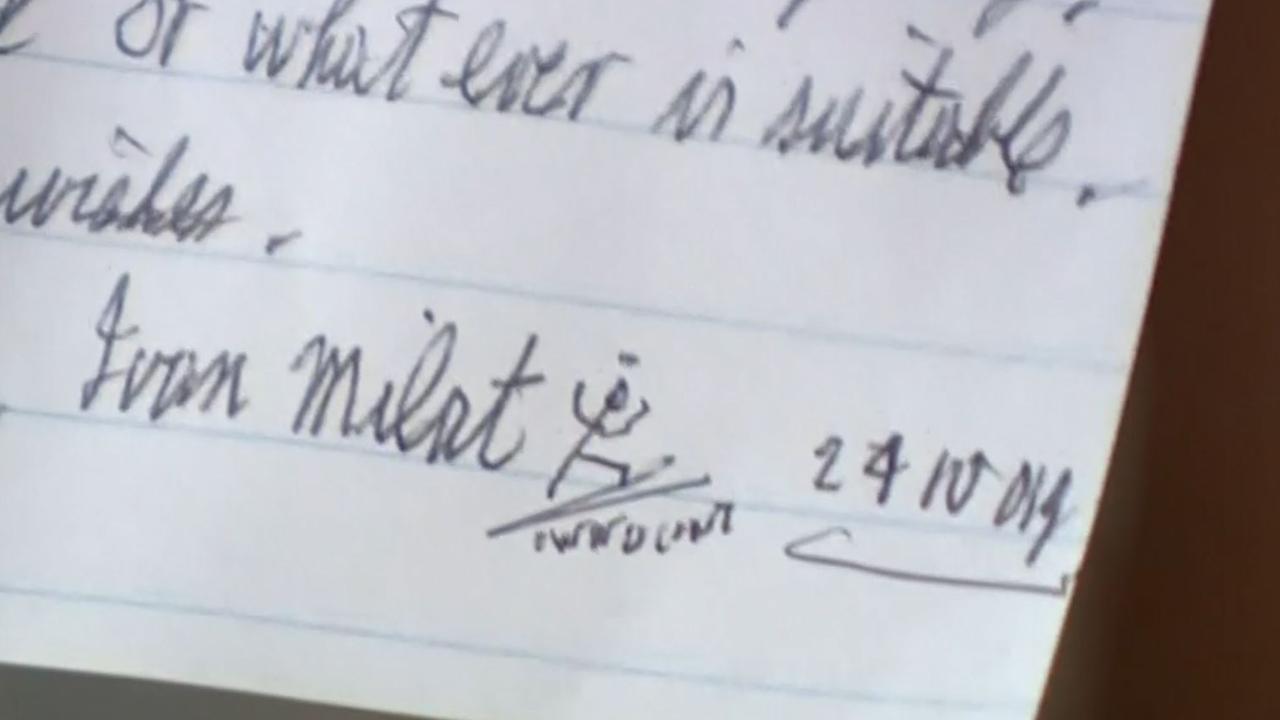 or what ever is suitable.
wishes.
Ivan Milat 24 10 019
innocent